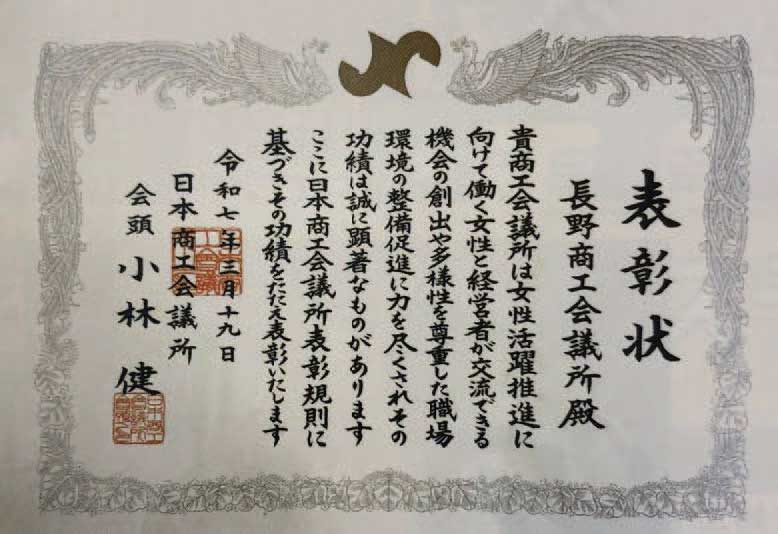 表彰状
長野商工会議所殿
貴商工会議所は女性活躍推進に
向けて働く女性と経営者が交流できる
機会の創出や多様性を尊重した職場
環境の整備促進に力を尽くされその
功績は誠に顕著なものがあります
ここに日本商工会議所表彰規則に
基づきその功績をたたえ表彰いたします
令和七年三月十九日
日本商工会議所
会頭 小林 健